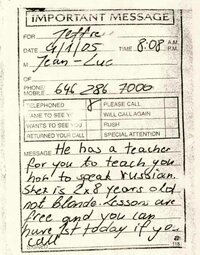 IMPORTANT MESSAGE
FOR Jeffrey
DATE 4/1/05 TIME 8:08 A.M. P.M.
M Jean-Luc
OF
PHONE/
MOBILE 646 286 7000
TELEPHONED PLEASE CALL
CAME TO SEE YOU WILL CALL AGAIN
WANTS TO SEE YOU RUSH
RETURNED YOUR CALL SPECIAL ATTENTION
MESSAGE He has a teacher
for you to teach you
how to speak russian.
She is 2x8 years old
not blonde. Lessons are
free and you can
have 1st today if you
call